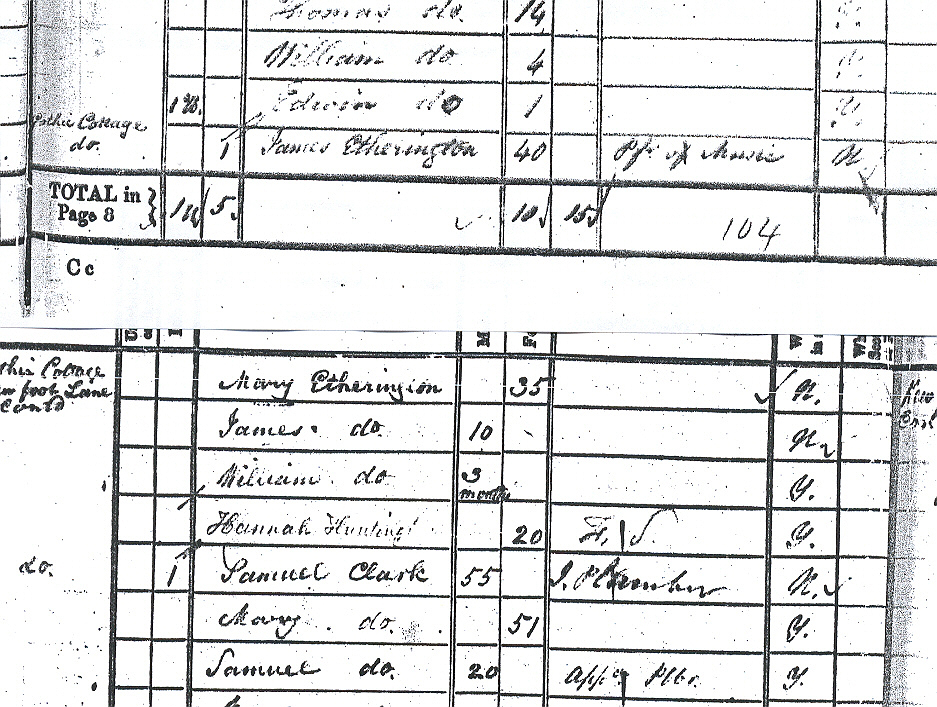 Thomas do 14 Y.
William do 4 Y.
1 B. Edwin do 1 Y.
Gothic Cottage
do. 1 James Etherington 40 Pfr of Music N
TOTAL in
Page 8 } 5 10 15
104
C c
thic Cottage Mary Etherington 35 N.
foot Lane
Contd James do. 10 N
William do 3 months Y.
Hannah 20 F. S. Y.
do. 1 Samuel Clark 55 J. Plumber N.
Mary do. 51 Y.
Samuel do. 20 App Plbr Y.